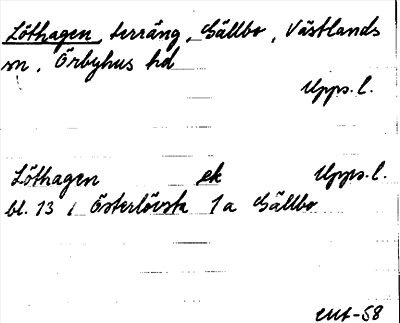 Löthagen, terräng, Sällbo, Västlands
sn, Örbyhus hd
Upps. l.
Löthagen ek Upps. l.
bl. 13 Österlövsta 1a Sällbo
-58